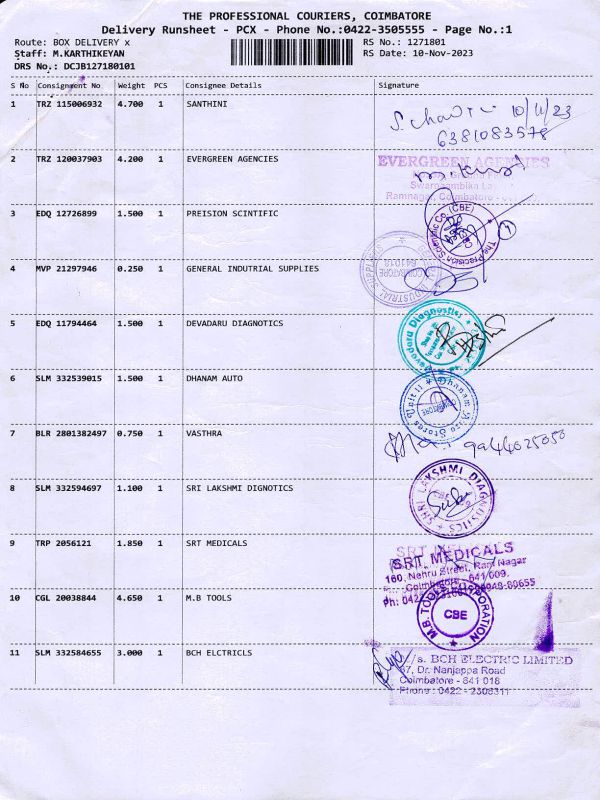 THE PROFESSIONAL COURIERS, COIMBATORE
Delivery Runsheet - PCX - Phone No.:0422-3505555 - Page No.:1
Route: BOX DELIVERY x RS No.: 1271801
Staff: M.KARTHIKEYAN RS Date: 10-Nov-2023
DRS No.: DCJB127180101
S No Consignment No Weight PCS Consignee Details Signature
1 TRZ 115006932 4.700 1 SANTHINI
10/11/23
6381083578
2 TRZ 120037903 4.200 1 EVERGREEN AGENCIES
EVERGREEN AGENCIES
Ramnagar, Coimbatore
3 EDQ 12726899 1.500 1 PREISION SCINTIFIC
The Precision Scientific Co. (CBE)
4 MVP 21297946 0.250 1 GENERAL INDUTRIAL SUPPLIES
INDUSTRIAL SUPPLIES
COIMBATORE
641018
5 EDQ 11794464 1.500 1 DEVADARU DIAGNOTICS
Devadaru Diagnostics
6 SLM 332539015 1.500 1 DHANAM AUTO
Dhanam Auto Stores Unit II
COIMBATORE
7 BLR 2801382497 0.750 1 VASTHRA
9944025050
8 SLM 332594697 1.100 1 SRI LAKSHMI DIGNOTICS
SHRI LAKSHMI DIAGNOSTICS
9 TRP 2056121 1.850 1 SRT MEDICALS
SRT MEDICALS
160, Nehru Street, Ram Nagar
Coimbatore - 641 009.
Ph: 0422
10 CGL 20038844 4.650 1 M.B TOOLS
M.B. TOOLS CORPORATION
CBE
11 SLM 332584655 3.000 1 BCH ELCTRICLS
/s. BCH ELECTRIC LIMITED
67, Dr. Nanjappa Road
Coimbatore - 641 018
Phone : 0422 - 2305311